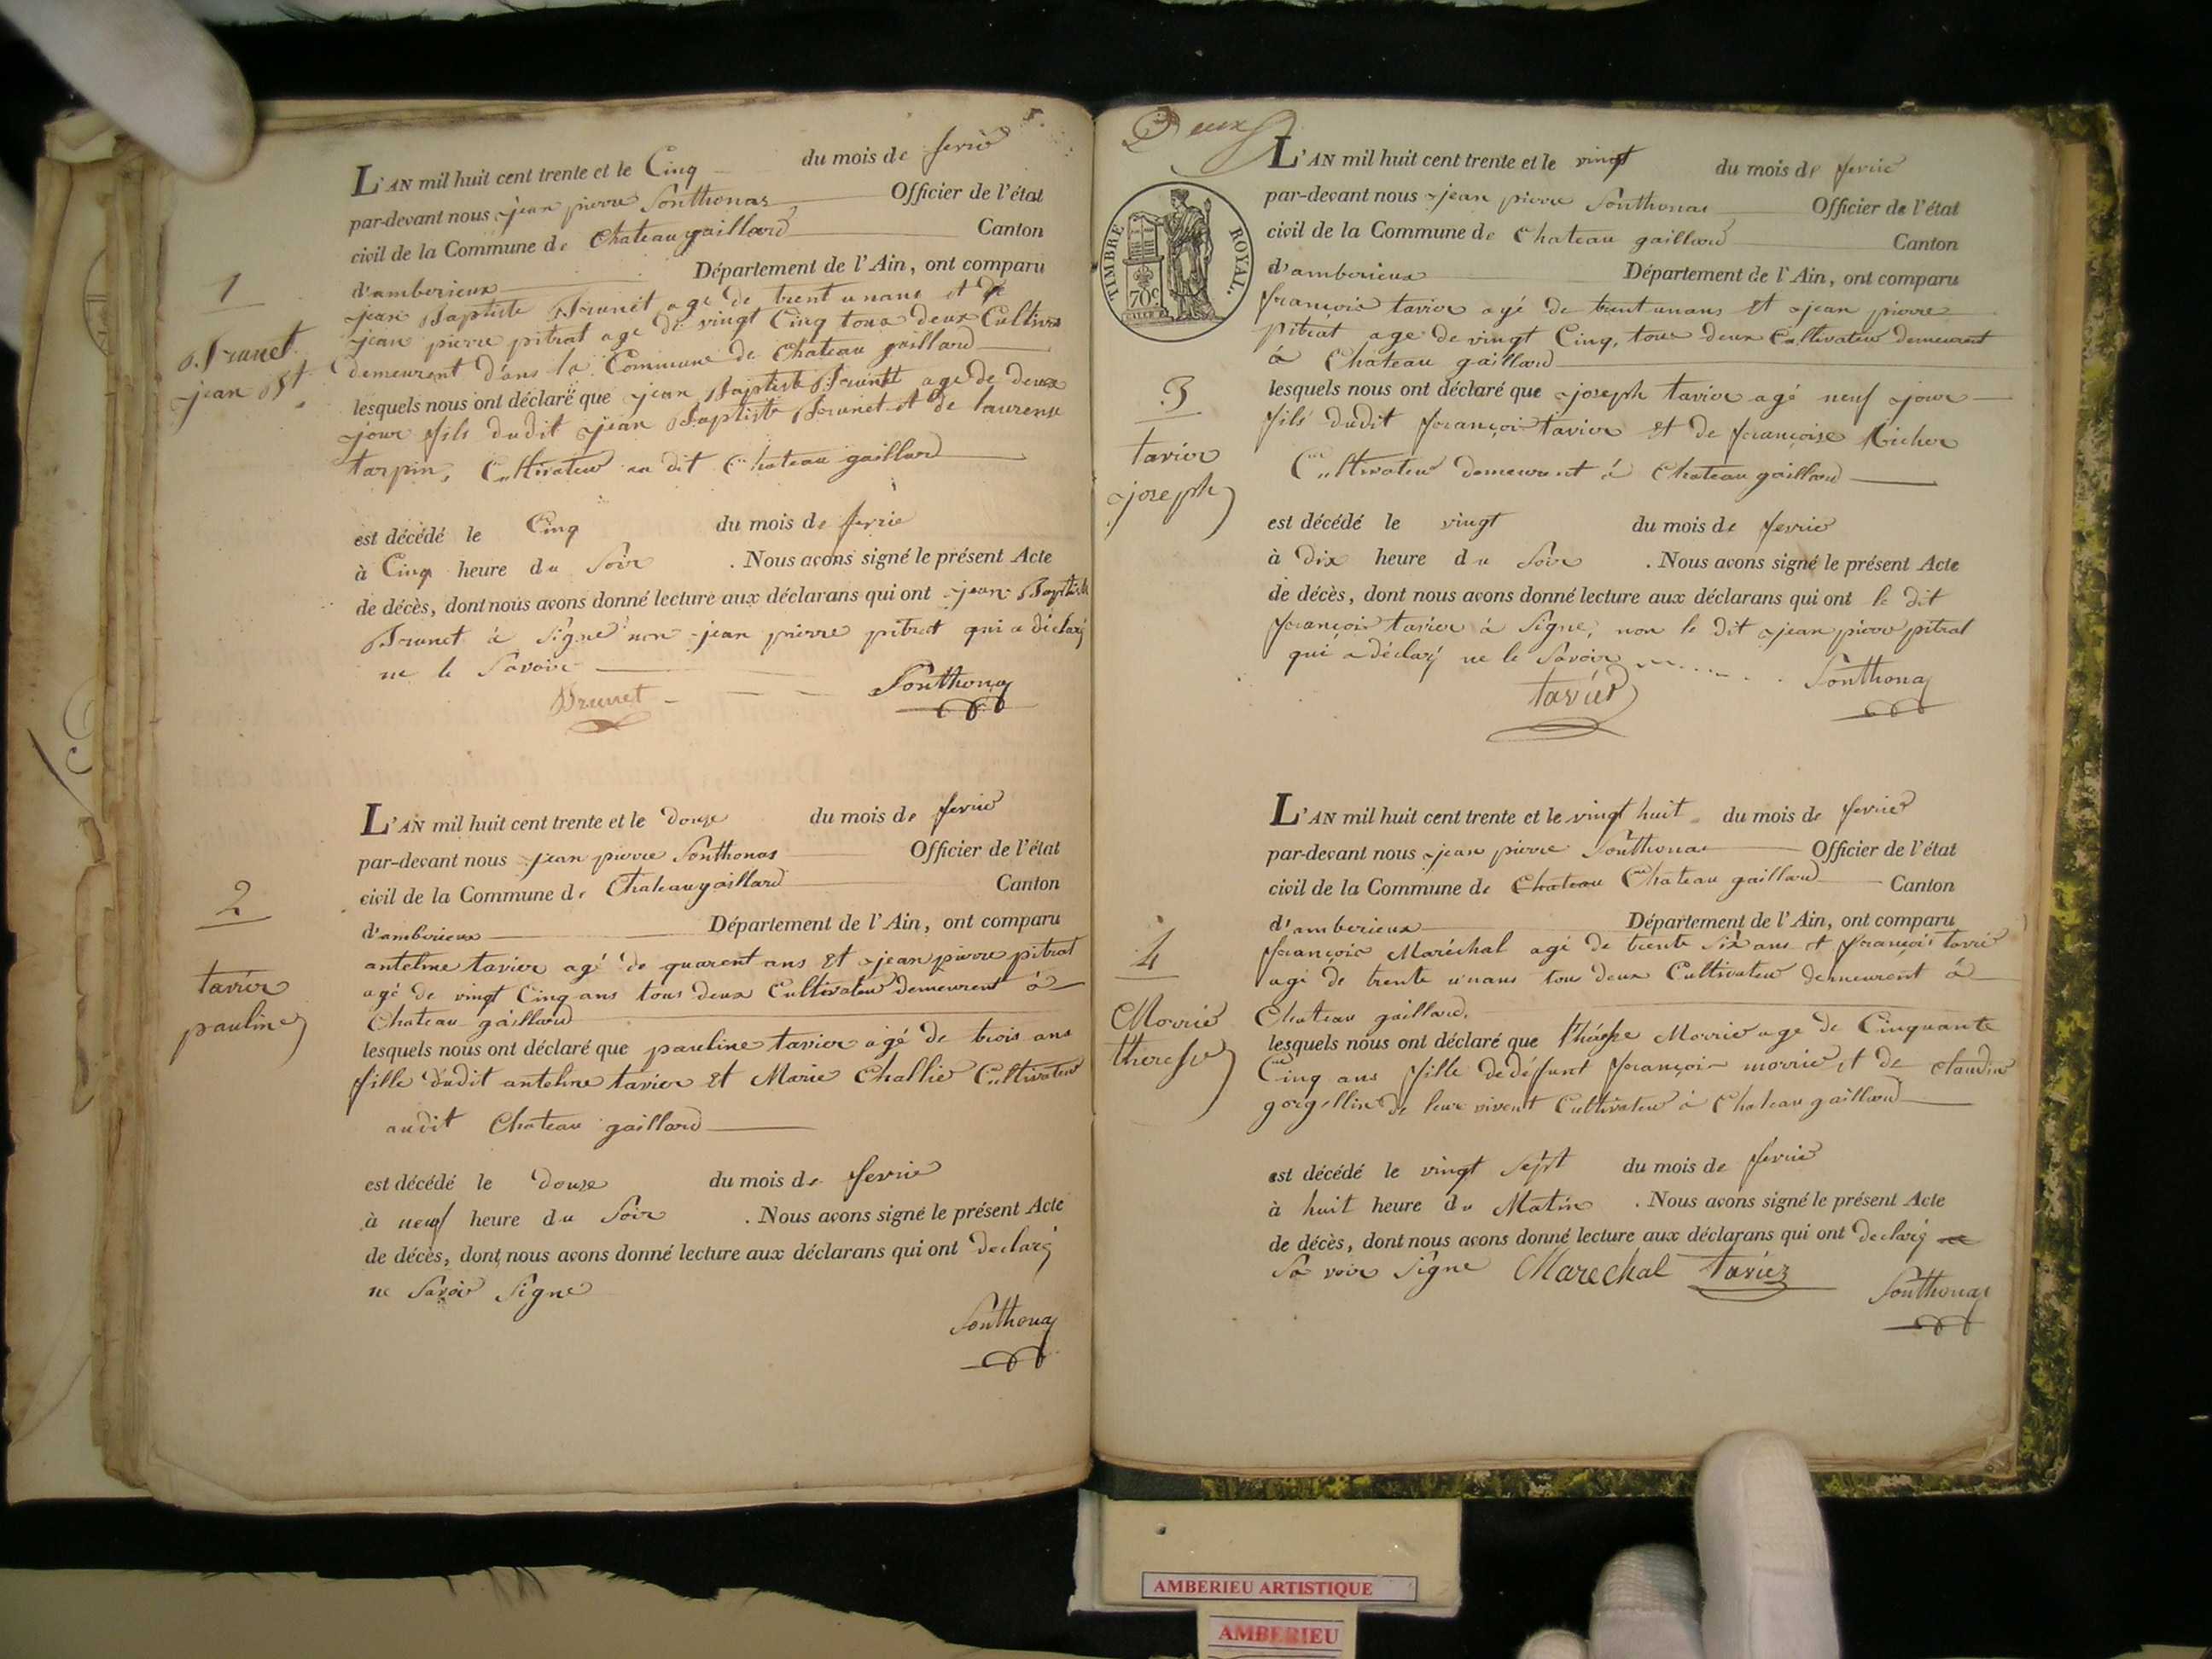 L'AN mil huit cent trente et le Cinq du mois de fevrié
par-devant nous jean pierre Sonthonas Officier de l'état
civil de la Commune de Chateaugaillard Canton
d'amberieux Département de l'Ain, ont comparu
jean Baptiste Brunet age de trent unans et de
jean pierre pitrat age de vingt Cinq tous deux Cultivr
demeurent dans la Commune de Chateau gaillard
lesquels nous ont déclaré que jean Baptiste Brunet age de deux
jour fils dudit jean Baptiste Brunet et de laurense
tarpin, Cultivateur au dit Chateau gaillard
est décédé le Cinq du mois de fevrié
à Cinq heure du Soir . Nous avons signé le présent Acte
de décès, dont nous avons donné lecture aux déclarans qui ont jean Baptiste
Brunet à Signé non jean pierre pitrat qui a déclaré
ne le Savoir
Brunet Sonthonas
1
Brunet
jean Bt
L'AN mil huit cent trente et le douze du mois de fevrié
par-devant nous jean pierre Sonthonas Officier de l'état
civil de la Commune de Chateaugaillard Canton
d'amberieux Département de l'Ain, ont comparu
antelme tavier agé de quarent ans et jean pierre pitrat
agé de vingt Cinq ans tous deux Cultivateur demeurent à
Chateau gaillard
lesquels nous ont déclaré que pauline tavier agé de trois ans
fille dudit antelme tavier et Marie Challier Cultivateur
audit Chateau gaillard
est décédé le douze du mois de fevrié
à neuf heure du Soir . Nous avons signé le présent Acte
de décès, dont nous avons donné lecture aux déclarans qui ont declaré
ne Savoir Signe
Sonthonas
2
tavier
pauline
Deux
TIMBRE ROYAL.
70c
L'AN mil huit cent trente et le vingt du mois de fevrié
par-devant nous jean pierre Sonthonas Officier de l'état
civil de la Commune de Chateau gaillard Canton
d'amberieux Département de l'Ain, ont comparu
françois tavier agé de trent unans et jean pierre
pitrat age de vingt Cinq, tous deux Cultivateur demeurent
à Chateau gaillard
lesquels nous ont déclaré que joseph tavier agé neuf jour
fils dudit françois tavier et de françoise Richer
Cultivateur demeurent à Chateau gaillard
est décédé le vingt du mois de fevrie
à Dix heure du Soir . Nous avons signé le présent Acte
de décès, dont nous avons donné lecture aux déclarans qui ont le dit
françois tavier à Signe, non le dit jean pierre pitrat
qui a déclaré ne le Savoir
tavier Sonthonas
3
tavier
joseph
L'AN mil huit cent trente et le vingt huit du mois de fevrié
par-devant nous jean pierre Sonthonas Officier de l'état
civil de la Commune de Chateau Chateau gaillard Canton
d'amberieux Département de l'Ain, ont comparu
françois Maréchal agé de trente Six ans et françois tavié
agé de trente unans tous deux Cultivateur demeurent à
Chateau gaillard.
lesquels nous ont déclaré que Morrié age de Cinquante
Cinq ans fille de défunt françois morrié et de claudine
de leur vivent Cultivateur à Chateau gaillard
est décédé le vingt Sept du mois de fevrié
à huit heure du Matin . Nous avons signé le présent Acte
de décès, dont nous avons donné lecture aux déclarans qui ont declaré ne
Sa voir Signe Marechal taviez
Sonthonas
4
Morrié
therese
AMBERIEU ARTISTIQUE
AMBERIEU